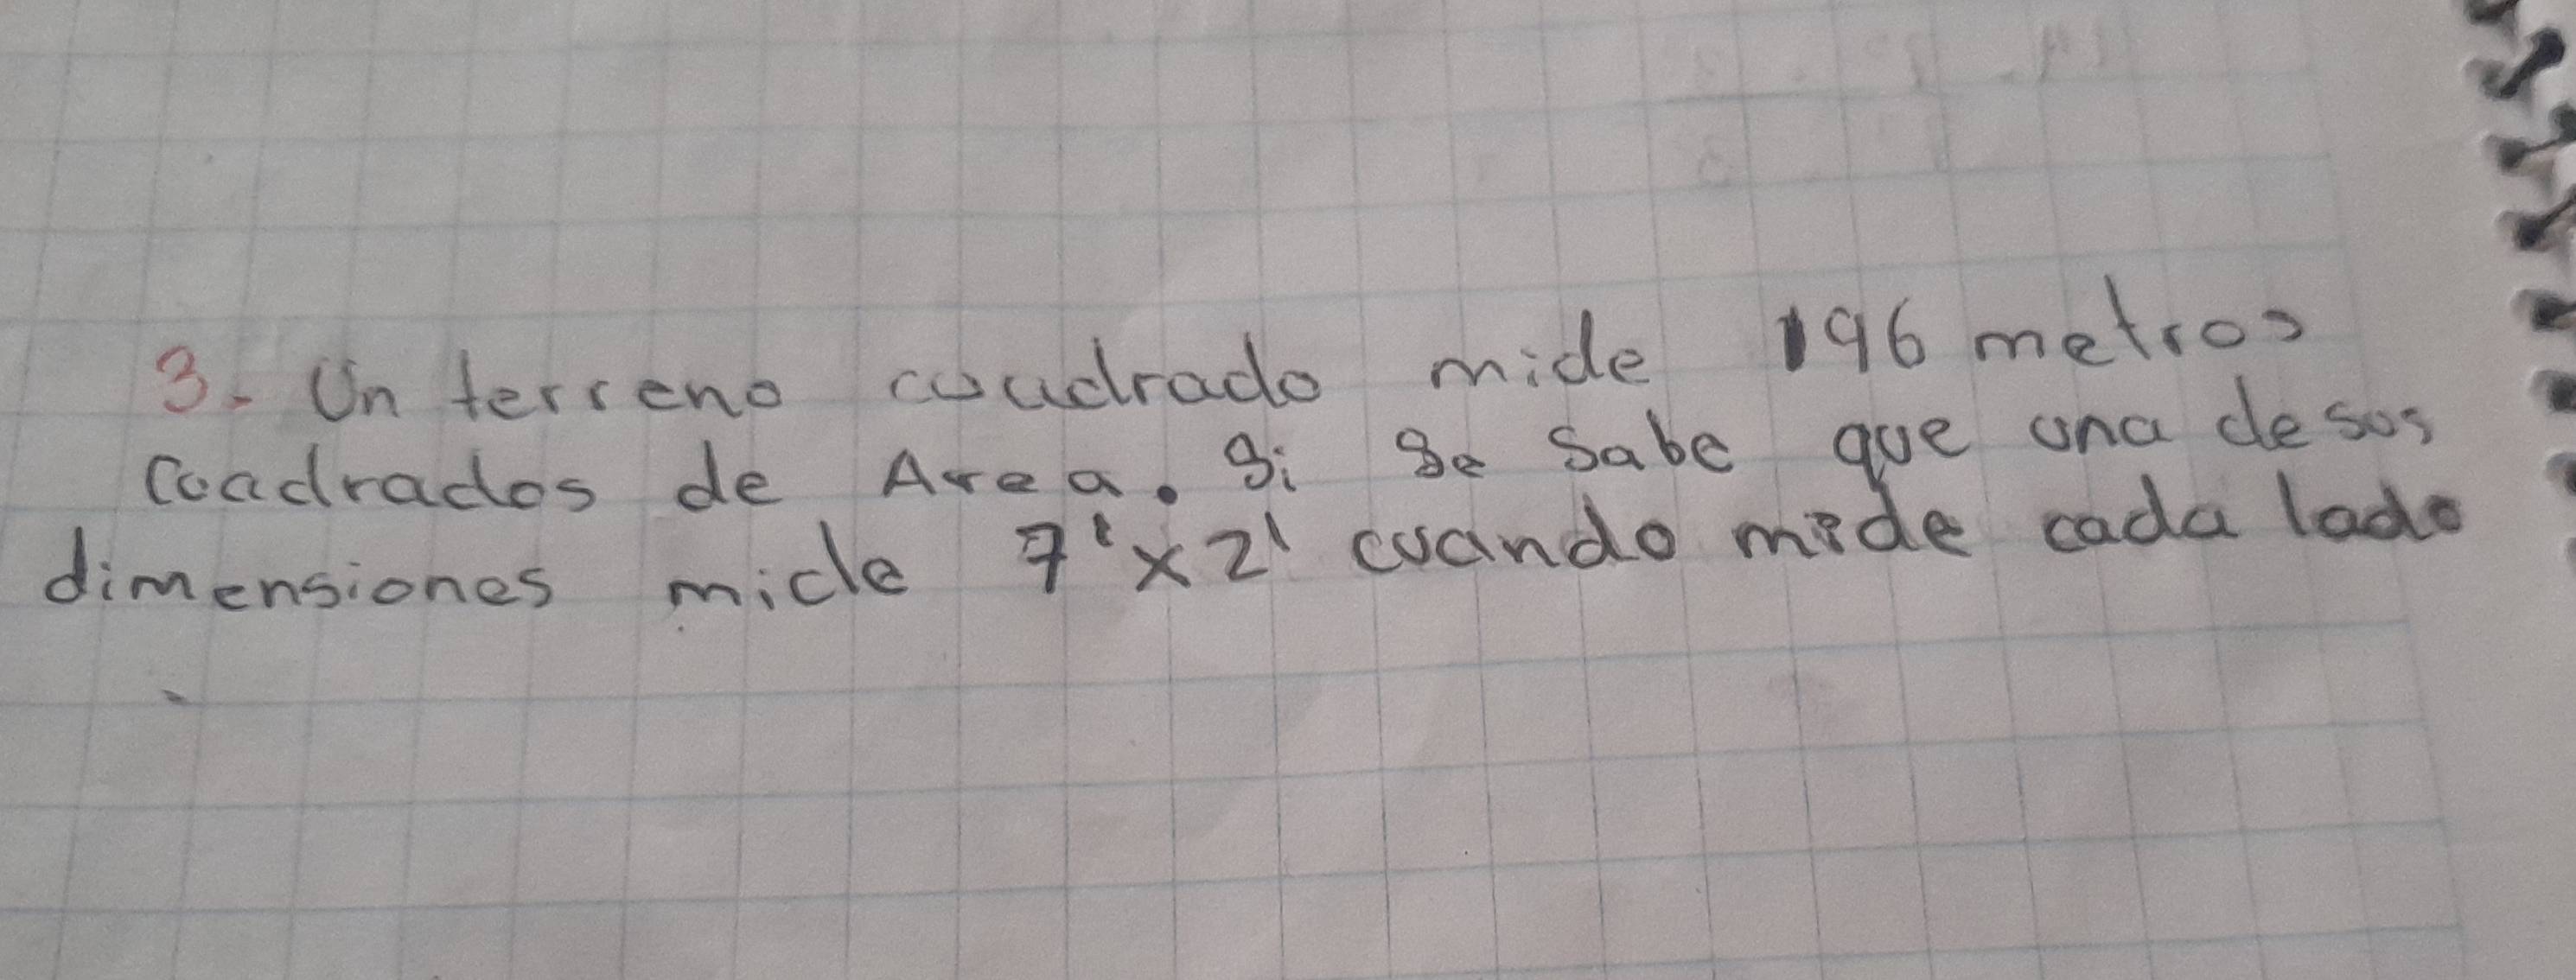 3. Un terreno cuadrado mide 196 metros
Coadrados de Area. Si Se Sabe que una de sus
dimensiones mide 7¹x2¹ cuando mide cada lado